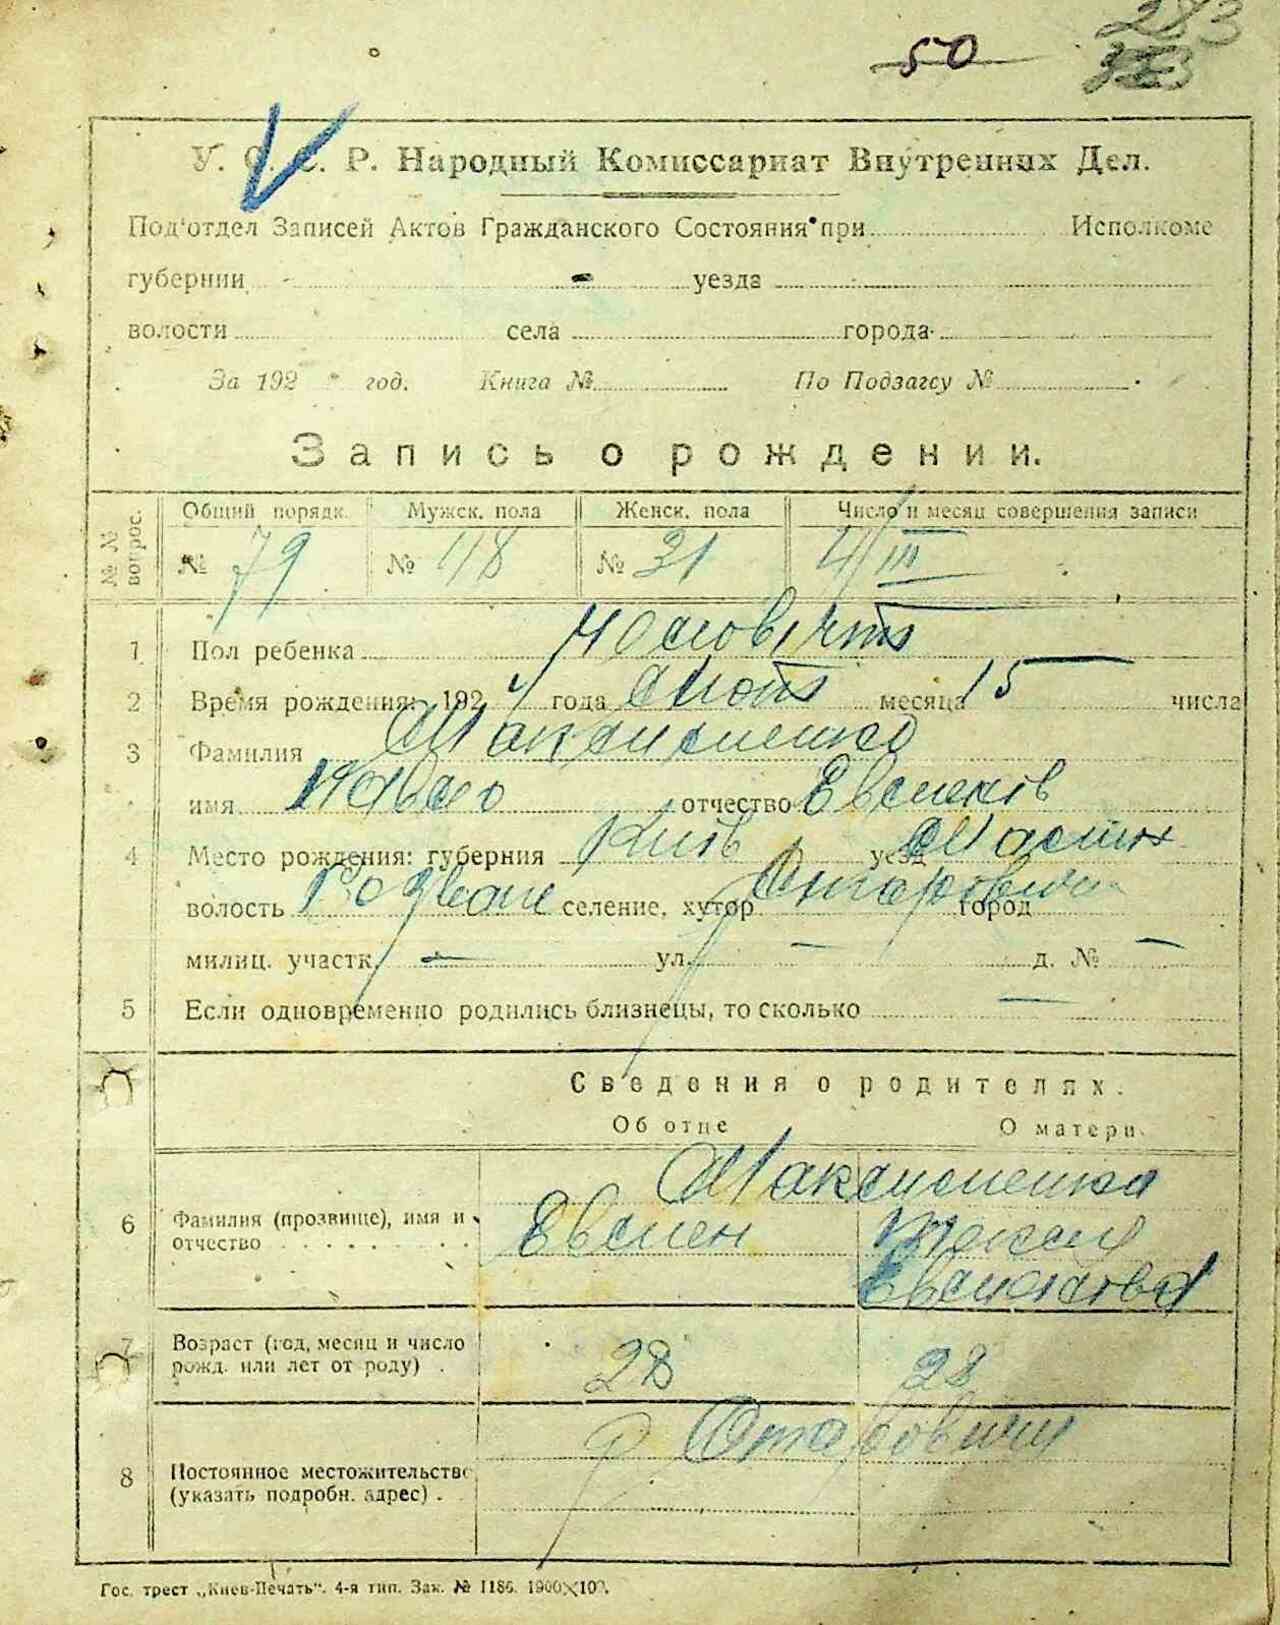 50
283
У. С. С. Р. Народный Комиссариат Внутренних Дел.
Под'отдел Записей Актов Гражданского Состояния при Исполкоме
губернии - уезда
волости села города
За 192 год. Книга № По Подзагсу №
Запись о рождении.
№ № вопрос.
Общий порядк. Мужск. пола Женск. пола Число и месяц совершения записи
№ 79 № 48 № 31 4/III
1 Пол ребенка
2 Время рождения: 192 года месяца 15 числа
3 Фамилия Максименко
имя отчество Евменів
4 Место рождения: губерния Київ уезд
волость селение, хутор Ставровичи город
милиц. участк. — ул. — д. № —
5 Если одновременно родились близнецы, то сколько —
Сведения о родителях.
Об отце О матери.
Максименко
6 Фамилия (прозвище), имя и отчество Евмен
7 Возраст (год, месяц и число рожд. или лет от роду) . 28 28
8 Постоянное местожительство (указать подробн. адрес) .
Гос. трест „Киев-Печать“. 4-я тип. Зак. № 1186. 1900×100.